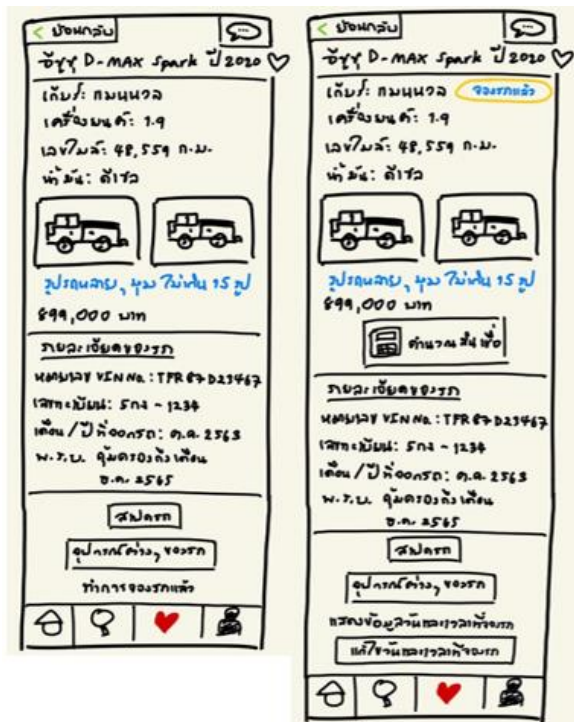 < ย้อนกลับ
อีซูซุ D-MAX Spark ปี 2020
เกียร์: แมนนวล
เครื่องยนต์: 1.9
เลขไมล์: 48,559 ก.ม.
น้ำมัน: ดีเซล
รูปรถหลายๆ มุม ไม่เกิน 15 รูป
899,000 บาท
รายละเอียดของรถ
หมายเลข VIN No.: TFR87D23467
เลขทะเบียน: 5กง - 1234
เดือน/ปี ที่ออกรถ: ต.ค. 2563
พ.ร.บ. คุ้มครองถึงเดือน
ธ.ค. 2565
สเปครถ
อุปกรณ์ต่างๆ ของรถ
ทำการจองรถแล้ว
< ย้อนกลับ
อีซูซุ D-MAX Spark ปี 2020
เกียร์: แมนนวล จองรถแล้ว
เครื่องยนต์: 1.9
เลขไมล์: 48,559 ก.ม.
น้ำมัน: ดีเซล
รูปรถหลายๆ มุม ไม่เกิน 15 รูป
899,000 บาท
คำนวณสินเชื่อ
รายละเอียดของรถ
หมายเลข VIN No.: TFR87D23467
เลขทะเบียน: 5กง - 1234
เดือน/ปี ที่ออกรถ: ต.ค. 2563
พ.ร.บ. คุ้มครองถึงเดือน
ธ.ค. 2565
สเปครถ
อุปกรณ์ต่างๆ ของรถ
แสดงข้อมูลวันและเวลาที่จองรถ
แก้ไขวันและเวลาที่จองรถ